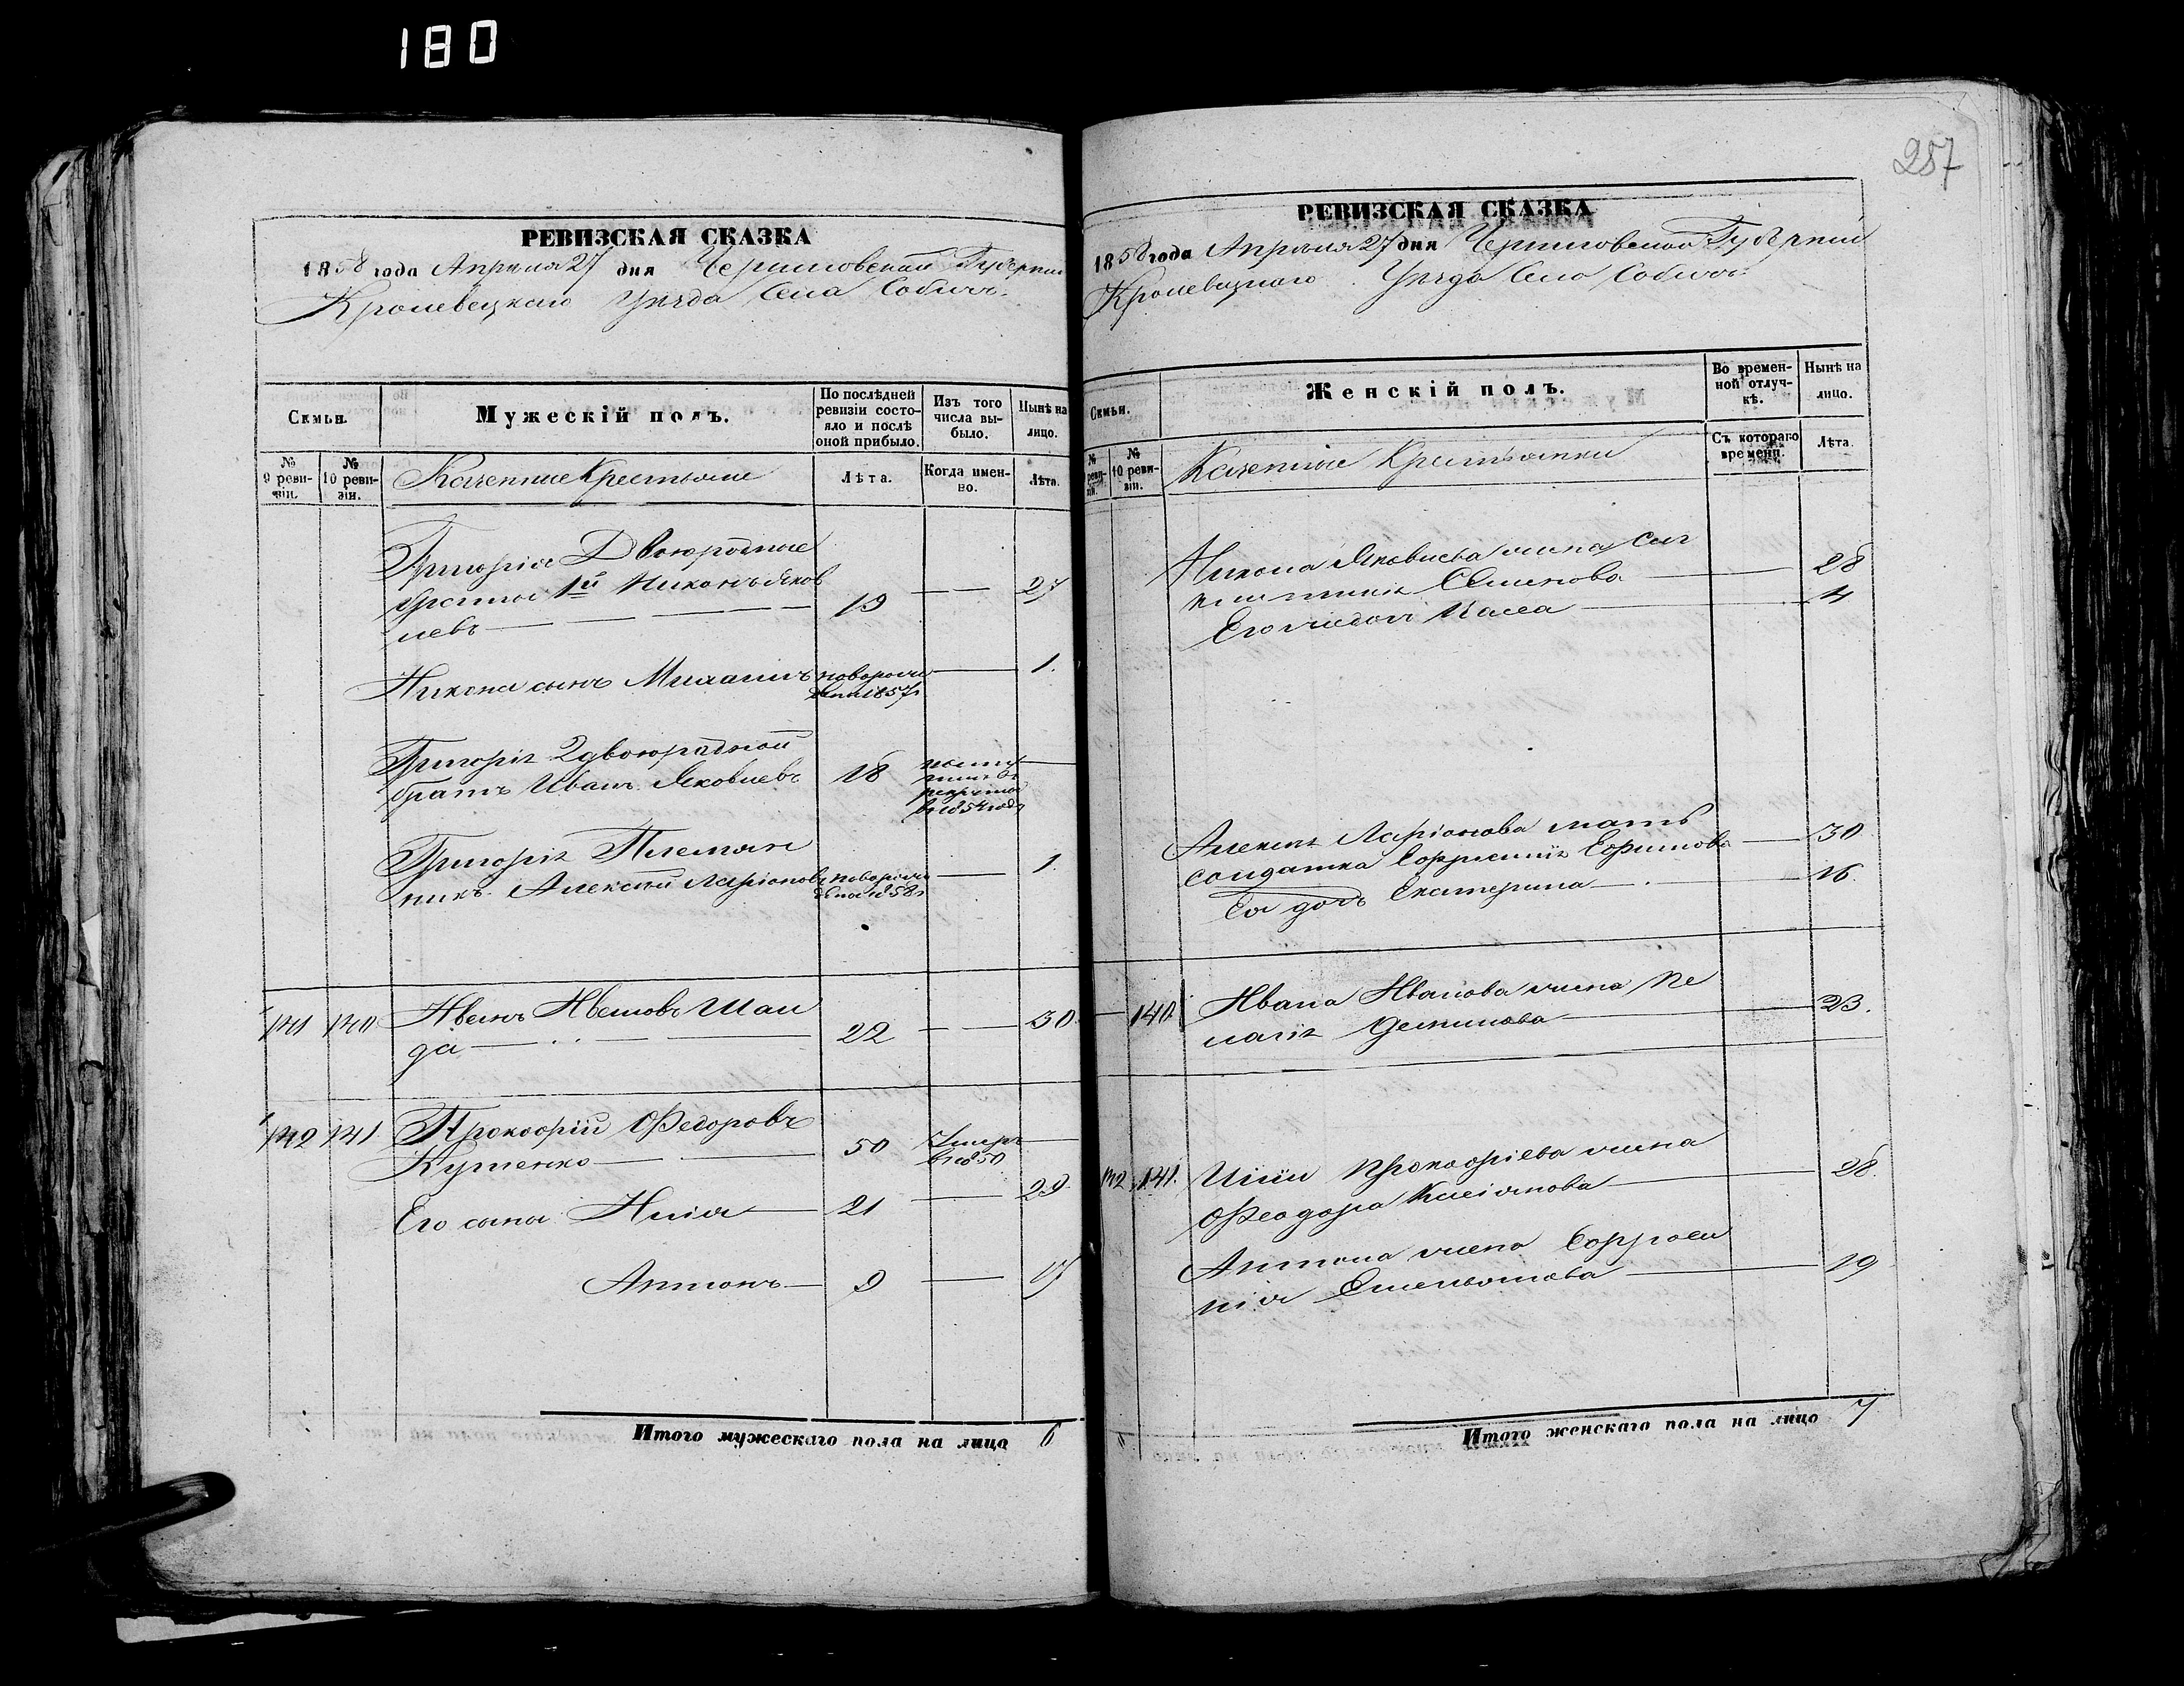 180
РЕВИЗСКАЯ СКАЗКА
1858 года Апреля 27 дня Черниговской Губернии
Кролевецкаго Уезда Села Собичь.
Семьи.
Мужескій полъ.
По послѣдней ревизіи состояло и послѣ оной прибыло.
Изъ того числа выбыло.
Нынѣ на лицо.
№ 9 ревизіи.
№ 10 ревизіи.
Казенные Крестьяне
Лѣта.
Когда именно.
Лѣта.
Григорія Двоюродные
братья 1й Никонъ Яков
левъ 19 27
Никона сынъ Михаилъ новорожденъ 1857г 1.
Григорія 2 двоюродной
братъ Иванъ Яковлевъ 18 въ рекруты в 1854 году
Григорія Племян
никъ Алексей Ларіоновъ новорожденъ 1858г 1.
141 140 Иванъ Ивановъ Шал
да 22 30
142 141 Прокофій Федоровъ
Куценко 50 Умеръ в 1850
Его сыны Илія 21 29
Антонъ 9 17
Итого мужескаго пола на лицо 6
257
РЕВИЗСКАЯ СКАЗКА
1858 года Апреля 27 дня Черниговской Губерніи
Кролевецкаго Уезда Село Собичь.
Семьи.
Женскій полъ.
Во временной отлучкѣ.
Нынѣ на лицо.
№ ревизіи.
№ 10 ревизіи.
Казенные Крестьянки
Съ котораго времени.
Лѣта.
Никона Яковлева жена
Семенова 28
Его дочь 4
Алексея Ларіонова мать
солдатка Ефросинія Ефимова 30
Ея дочь Екатерина 16.
140 Ивана Иванова жена Пе
лагія Демидова 23.
142 141. Иліи Прокофіева жена
Феодора Касіянова 28.
Антона жена Ефроси
нія Емельянова 19
Итого женскаго пола на лицо 7